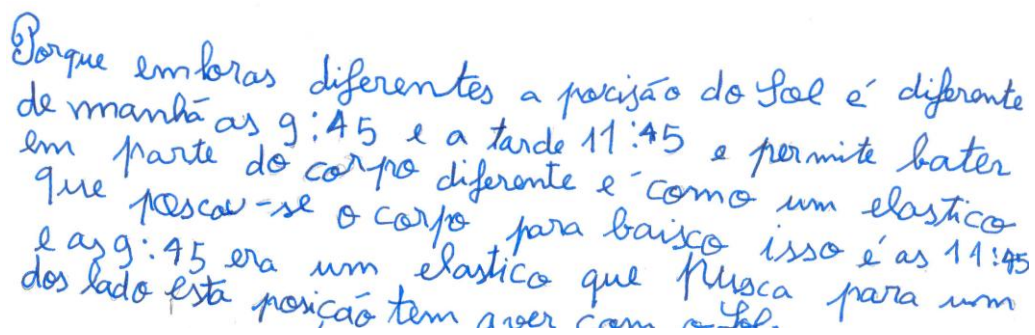 Porque em horas diferentes a pocisão do Sol é diferente
de manhã as 9:45 e a tarde 11:45 e permite bater
em parte do corpo diferente e como um elastico
que poscou-se o corpo para baisco isso é as 11:45
e as 9:45 era um elastico que pusca para um
dos lado esta posição tem aver com o Sol.